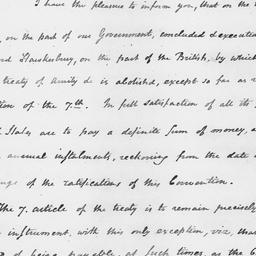 I have the pleasure to inform you, that on the
, on the part of our Government, concluded & executed
Lord Hawkesbury, on the part of the British, by which
treaty of Amity &c is abolished, except so far as
tion of the 7.th. In full satisfaction of all its
States are to pay a definite sum of money,
annual instalments, reckoning from the date
nge of the ratifications of this Convention.
The 7. article of the treaty is to remain precisely
instrument, with this only exception, viz, that
of being payable, at such times, as the